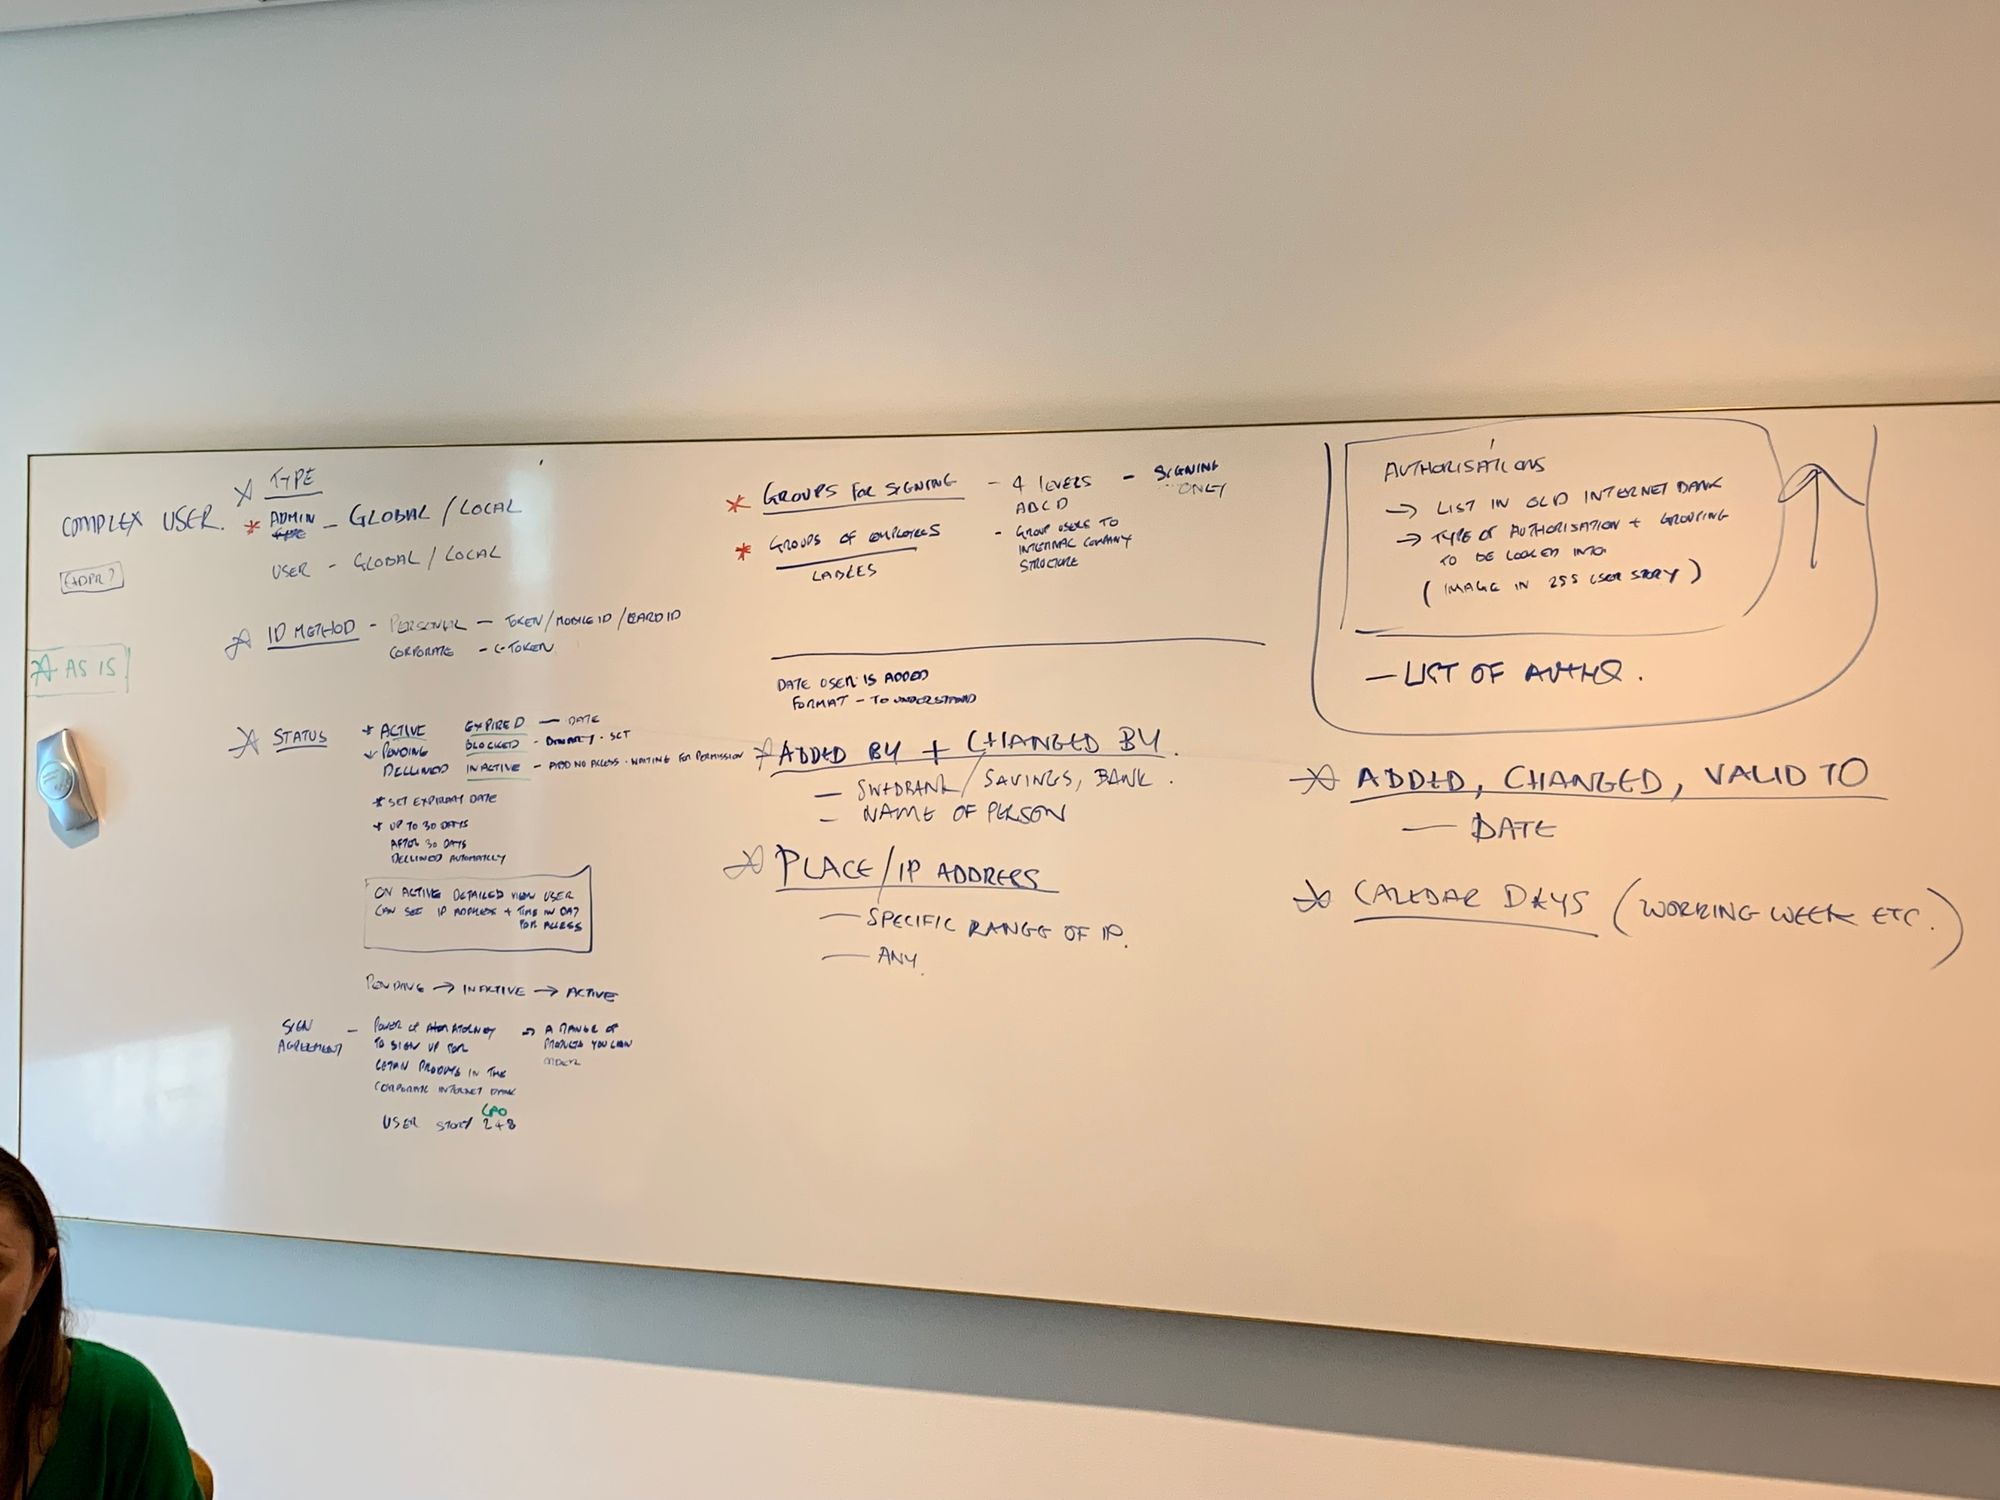 COMPLEX USER.
GDPR?
AS IS
TYPE
ADMIN - GLOBAL / LOCAL
USER - GLOBAL / LOCAL
ID METHOD - PERSONAL - TOKEN/MOBILE ID/CARD ID
CORPORATE - C-TOKEN
STATUS
ACTIVE EXPIRED - DATE
PENDING BLOCKED - BINARY - SET
DECLINED INACTIVE - ADD NO ACCESS - WAITING FOR PERMISSION
SET EXPIRAY DATE
UP TO 30 DAYS
AFTER 30 DAYS
DECLINED AUTOMATLLY
ON ACTIVE DETAILED VIEW USER
CAN SEE IP ADDRESS + TIME IN DAY
FOR ACCESS
PENDING → INACTIVE → ACTIVE
SIGN
AGREEMENT
- POWER OF ATTORNEY
TO SIGN UP FOR
CETAIN PRODUCTS IN THE
CORPORATE INTERNET BANK
→ A RANGE OF
PRODUCTS YOU CAN
ORDER
USER STORY 248
GROUPS FOR SIGNING - 4 LEVERS - SIGNING
ABCD ONLY
GROUPS OF EMPLOYEES
LABLES
- GROUP USERS TO
INTERNAL COMPANY
STRUCTURE
DATE USER IS ADDED
FORMAT - TO UNDERSTAND
ADDED BY + CHANGED BY.
- SWEDBANK/SAVINGS, BANK.
- NAME OF PERSON
PLACE/IP ADDRESS
- SPECIFIC RANGE OF IP.
- ANY.
AUTHORISATIONS
→ LIST IN OLD INTERNET BANK
→ TYPE OF AUTHORISATION + GROUPING
TO BE LOOKED INTO
(IMAGE IN 255 USER STORY)
- LIST OF AUTHO.
ADDED, CHANGED, VALID TO
- DATE
CALEDAR DAYS (WORKING WEEK ETC.)